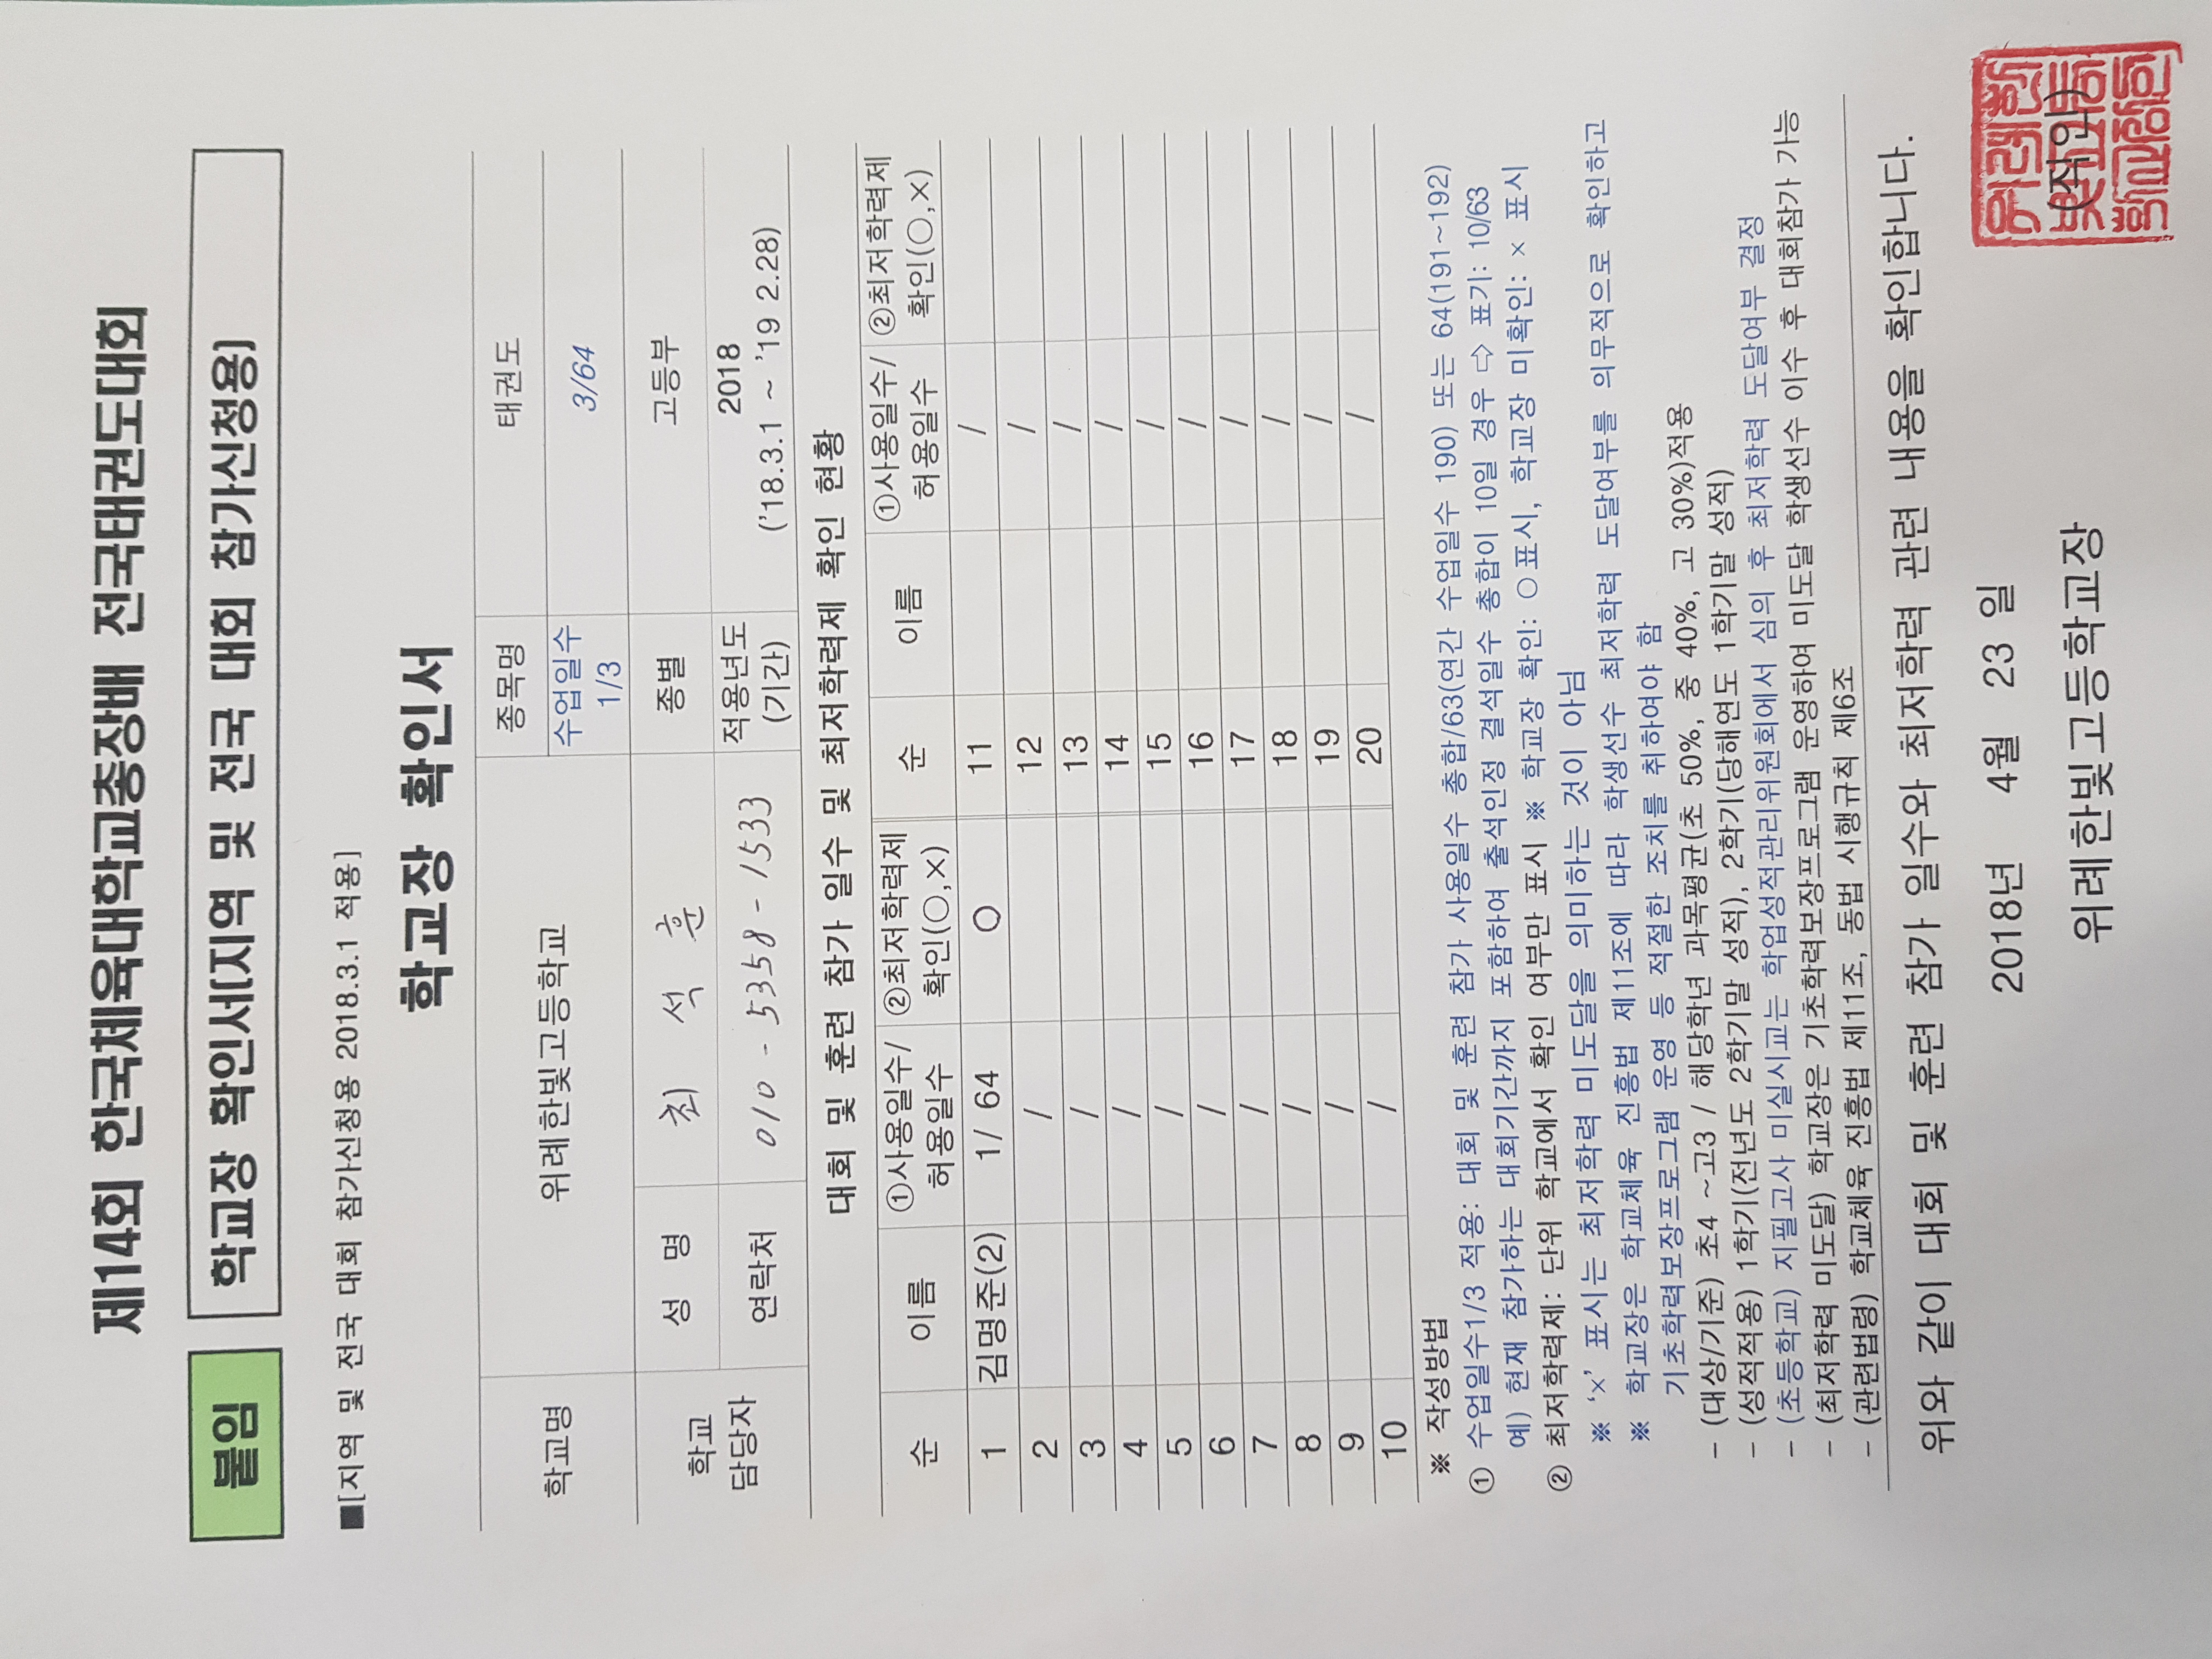 제14회 한국체육대학교총장배 전국태권도대회
붙임 학교장 확인서[지역 및 전국 대회 참가신청용]
■[지역 및 전국 대회 참가신청용 2018.3.1 적용]
학교장 확인서
학교명 위례한빛고등학교 종목명 태권도
수업일수 1/3 3/64
학교 담당자 성 명 최 석 훈 종별 고등부
연락처 010 - 5358 - 1533 적용년도 (기간) 2018 ('18.3.1 ~ '19 2.28)
대회 및 훈련 참가 일수 및 최저학력제 확인 현황
순 이름 ①사용일수/ 허용일수 ②최저학력제 확인(○,×) 순 이름 ①사용일수/ 허용일수 ②최저학력제 확인(○,×)
1 김명준(2) 1/ 64 ○ 11 /
2 / 12 /
3 / 13 /
4 / 14 /
5 / 15 /
6 / 16 /
7 / 17 /
8 / 18 /
9 / 19 /
10 / 20 /
※ 작성방법
① 수업일수1/3 적용: 대회 및 훈련 참가 사용일수 총합/63(연간 수업일수 190) 또는 64(191~192)
예) 현재 참가하는 대회기간까지 포함하여 출석인정 결석일수 총합이 10일 경우 ⇨ 표기: 10/63
② 최저학력제: 단위 학교에서 확인 여부만 표시 ※ 학교장 확인: ○ 표시, 학교장 미확인: × 표시
※ '×' 표시는 최저학력 미도달을 의미하는 것이 아님
※ 학교장은 학교체육 진흥법 제11조에 따라 학생선수 최저학력 도달여부를 의무적으로 확인하고
기초학력보장프로그램 운영 등 적절한 조처를 취하여야 함
- (대상/기준) 초4 ~고3 / 해당학년 과목평균(초 50%, 중 40%, 고 30%)적용
- (성적적용) 1학기(전년도 2학기말 성적), 2학기(당해연도 1학기말 성적)
- (초등학교) 지필고사 미실시교는 학업성적관리위원회에서 심의 후 최저학력 도달여부 결정
- (최저학력 미도달) 학교장은 기초학력보장프로그램 운영하여 미도달 학생선수 이수 후 대회참가 가능
- (관련법령) 학교체육 진흥법 제11조, 동법 시행규칙 제6조
위와 같이 대회 및 훈련 참가 일수와 최저학력 관련 내용을 확인합니다.
2018년 4월 23 일
위례한빛고등학교장 (직인)
위례한
빛고등
학교장인